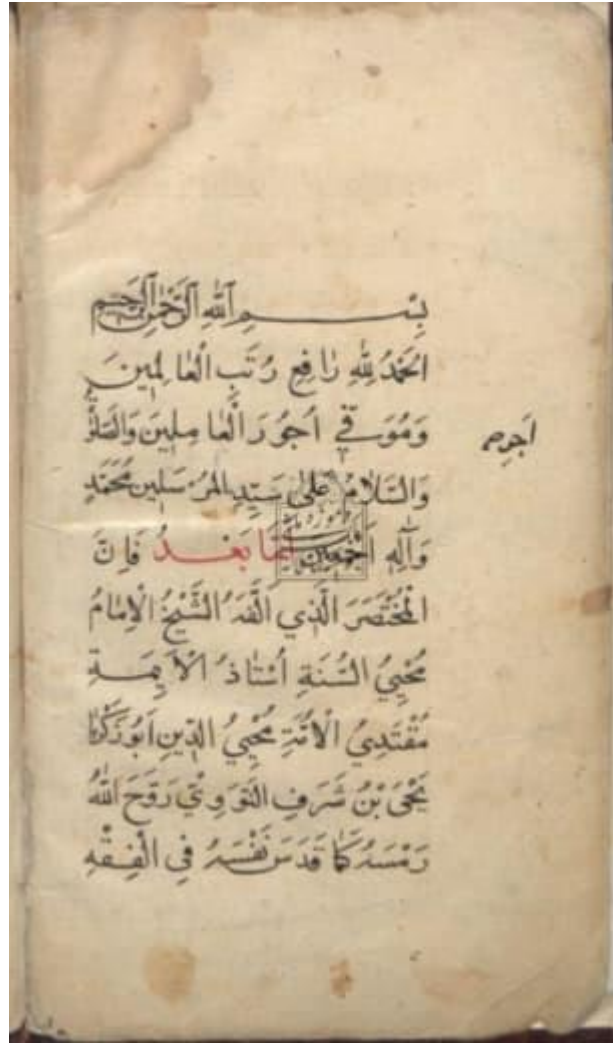 بِسْمِ اللّٰهِ الرَّحْمٰنِ الرَّحِيمِ
الحَمْدُ لِلّٰهِ رَافِعِ رُتَبِ الْعَالِمِينَ
وَمُوَفِّي اُجُورَ الْعَامِلِينَ وَالصَّلٰوةُ
وَالسَّلَامُ عَلٰى سَيِّدِ المُرْسَلِينَ مُحَمَّدٍ
وَآلِهِ اَجْمَعِينَ اَمَّا بَعْدُ فَاِنَّ
الْمُخْتَصَرَ الَّذِي اَلَّفَهُ الشَّيْخُ الْاِمَامُ
مُحْيِيُ السُّنَةِ اُسْتَاذُ الْاَئِمَةِ
مُقْتَدِيُ الْاُمَّةِ مُحْيِيُ الدِّينِ اَبُو زَكَرِيَّا
يَحْيَى بْنُ شَرَفِ النَّوَوِيّ رَوَّحَ اللّٰهُ
رَمْسَهُ كَمَا قَدَّسَ نَفْسَهُ فِي الْفِقْهِ